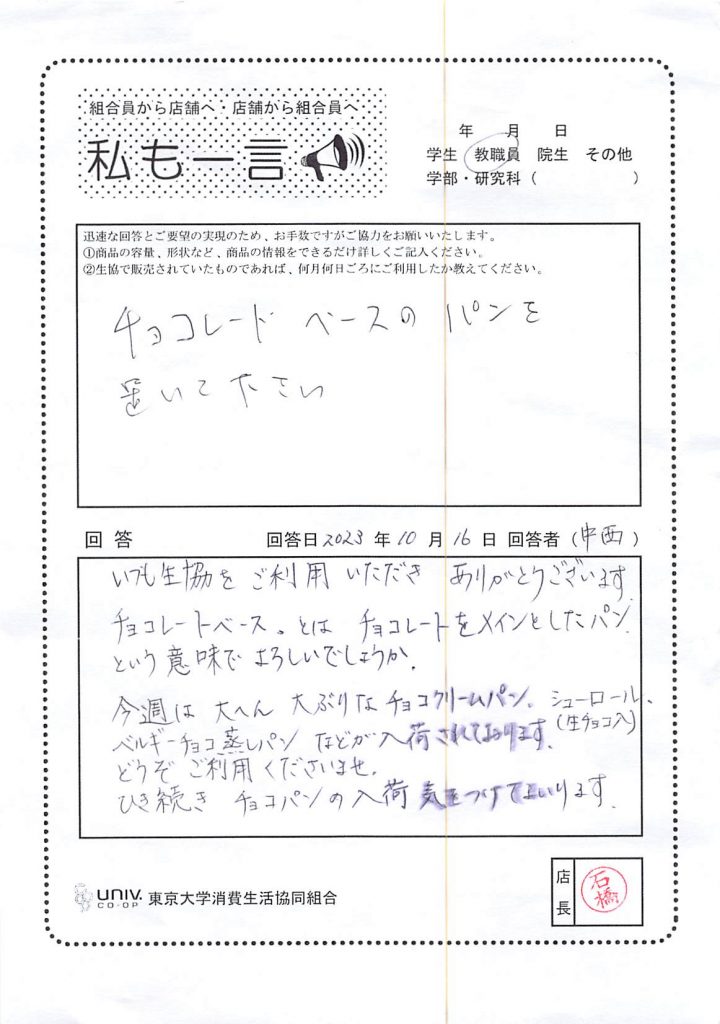 組合員から店舗へ・店舗から組合員へ
私も一言
年 月 日
学生 教職員 院生 その他
学部・研究科( )
迅速な回答とご要望の実現のため、お手数ですがご協力をお願いいたします。
①商品の容量、形状など、商品の情報をできるだけ詳しくご記入ください。
②生協で販売されていたものであれば、何月何日ごろにご利用したか教えてください。
チョコレード ベースの パンを
置いて下さい
回答 回答日2023年10月16日 回答者(中西)
いつも生協をご利用いただき ありがとうございます。
チョコレートベース。とは チョコレートをメインとしたパン
という意味でよろしいでしょうか。
今週は 大へん 大ぶりな チョコクリームパン、シューロール、
(生チョコ入)
ベルギーチョコ蒸しパン などが入荷されております。
どうぞ ご利用くださいませ。
ひき続き チョコパンの入荷 気をつけてまいります。
UNIV. CO-OP 東京大学消費生活協同組合
店長 石橋